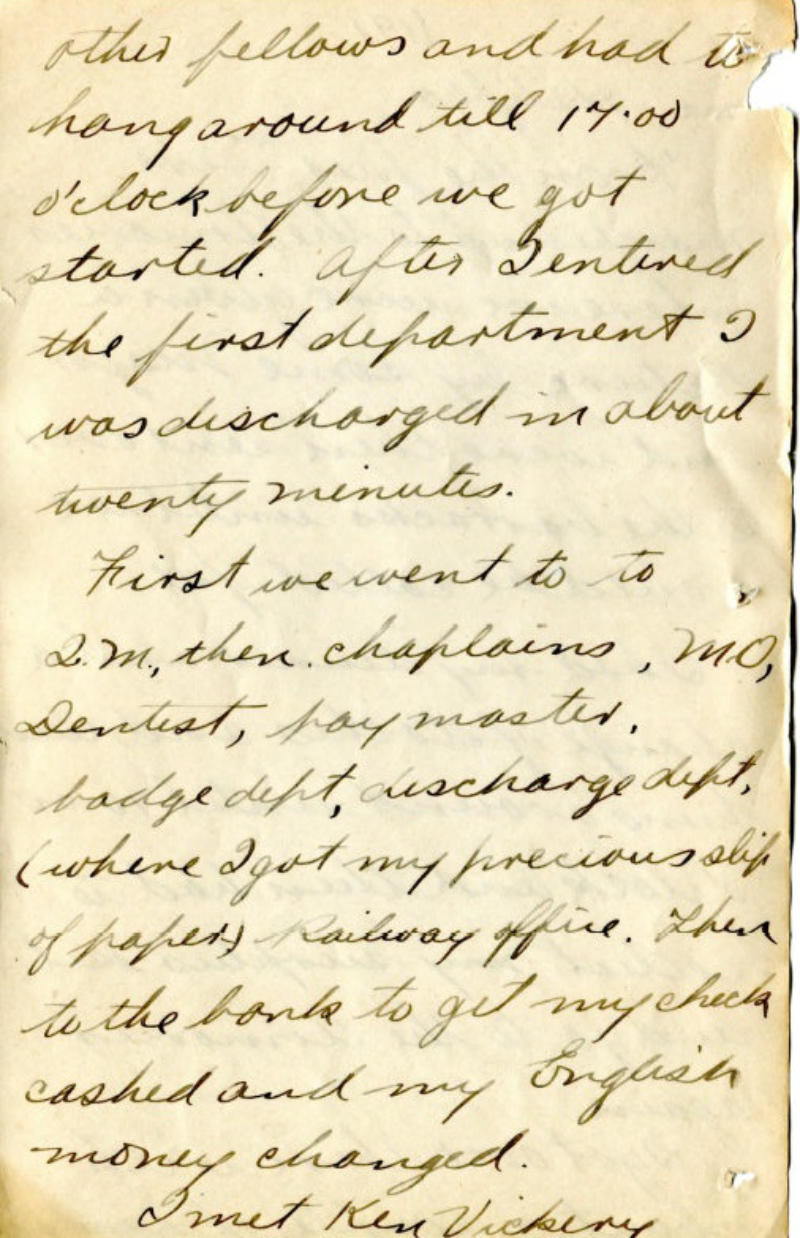 other fellows and had to
hang around till 17.00
o'clock before we got
started. After I entered
the first department I
was discharged in about
twenty minutes.
First we went to to
Q.M., then. chaplains, M.O,
Dentist, paymaster,
badge dept, discharge dept,
(where I got my precious slip
of paper) Railway office. Then
to the bank to get my check
cashed and my English
money changed.
I met Ken Vickery